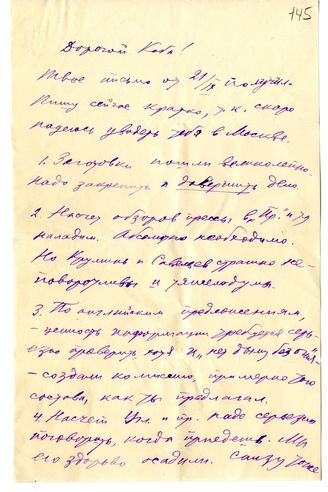 145
Дорогой Коба!
Твое письмо от 21/IX получил.
Пишу сейчас кратко, т.к. скоро
надеюсь увидеть тебя в Москве.
1. Заготовки пошли великолепно.
Надо закрепить и довершить дело.
2. Насчет обзоров прессы в „Пр." и т.д.
наладим. Абсолютно необходимо.
Но Крумины и Савельев страшно не-
поворотливы и тяжелодумы.
3. По английским предложениям,
- ценность информации требуется серь-
езно проверить хотя и „нет дыму без огня"
- создали комиссию, примерно того
состава, как ты предлагал.
4. Насчет Угл. и пр. надо серьезно
поговорить, когда приедешь. Мы
его здорово осадили. Снизу тоже